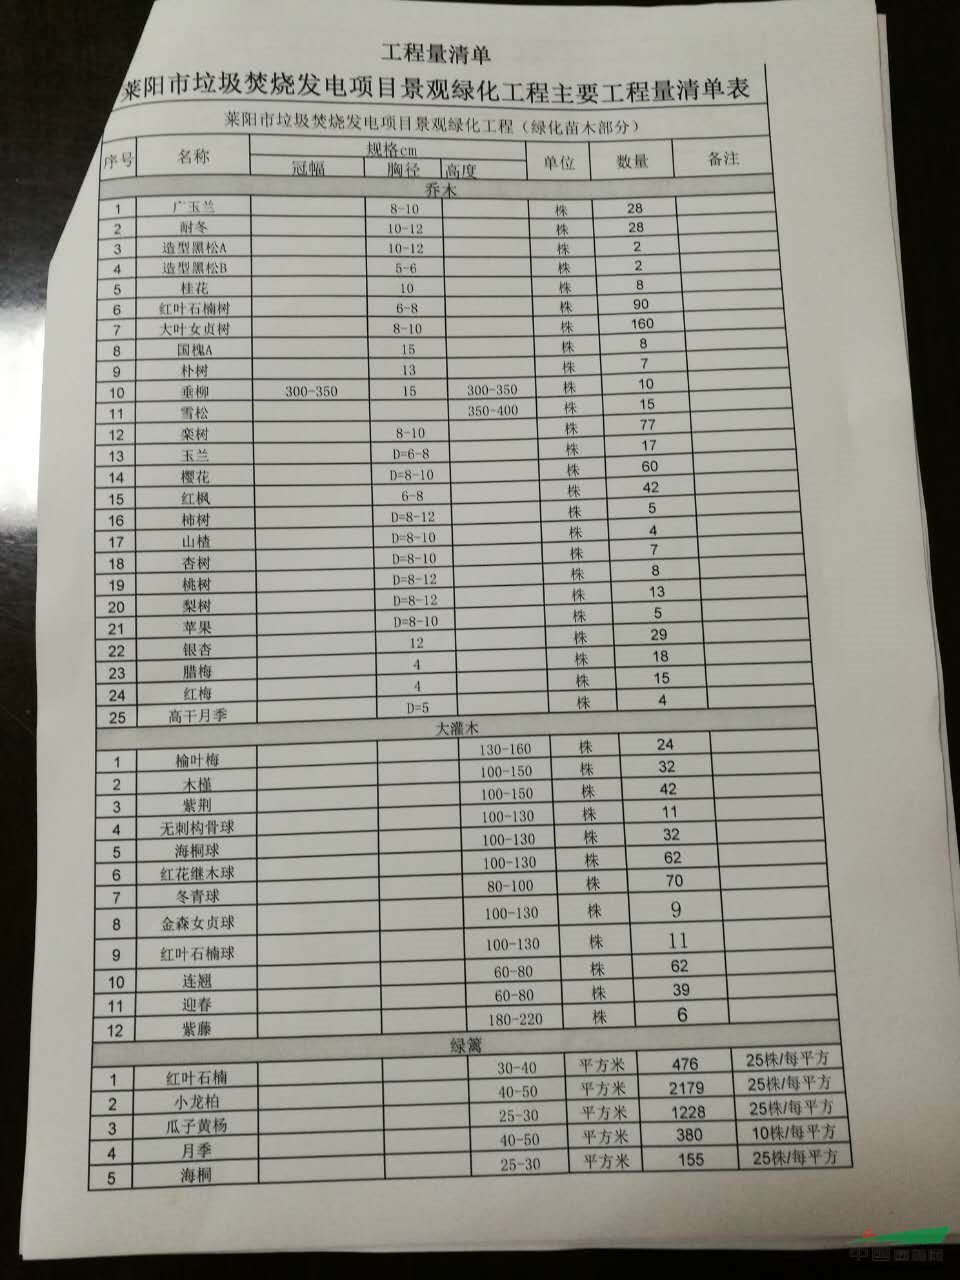 工程量清单
莱阳市垃圾焚烧发电项目景观绿化工程主要工程量清单表
莱阳市垃圾焚烧发电项目景观绿化工程（绿化苗木部分）
序号 名称 规格cm 单位 数量 备注
冠幅 胸径 高度
乔木
1 广玉兰 8-10 株 28
2 耐冬 10-12 株 28
3 造型黑松A 10-12 株 2
4 造型黑松B 5-6 株 2
5 桂花 10 株 8
6 红叶石楠树 6-8 株 90
7 大叶女贞树 8-10 株 160
8 国槐A 15 株 8
9 朴树 13 株 7
10 垂柳 300-350 15 300-350 株 10
11 雪松 350-400 株 15
12 栾树 8-10 株 77
13 玉兰 D=6-8 株 17
14 樱花 D=8-10 株 60
15 红枫 6-8 株 42
16 柿树 D=8-12 株 5
17 山楂 D=8-10 株 4
18 杏树 D=8-10 株 7
19 桃树 D=8-12 株 8
20 梨树 D=8-12 株 13
21 苹果 D=8-10 株 5
22 银杏 12 株 29
23 腊梅 4 株 18
24 红梅 4 株 15
25 高干月季 D=5 株 4
大灌木
1 榆叶梅 130-160 株 24
2 木槿 100-150 株 32
3 紫荆 100-150 株 42
4 无刺构骨球 100-130 株 11
5 海桐球 100-130 株 32
6 红花继木球 100-130 株 62
7 冬青球 80-100 株 70
8 金森女贞球 100-130 株 9
9 红叶石楠球 100-130 株 11
10 连翘 60-80 株 62
11 迎春 60-80 株 39
12 紫藤 180-220 株 6
绿篱
1 红叶石楠 30-40 平方米 476 25株/每平方
2 小龙柏 40-50 平方米 2179 25株/每平方
3 瓜子黄杨 25-30 平方米 1228 25株/每平方
4 月季 40-50 平方米 380 10株/每平方
5 海桐 25-30 平方米 155 25株/每平方
中国园林网